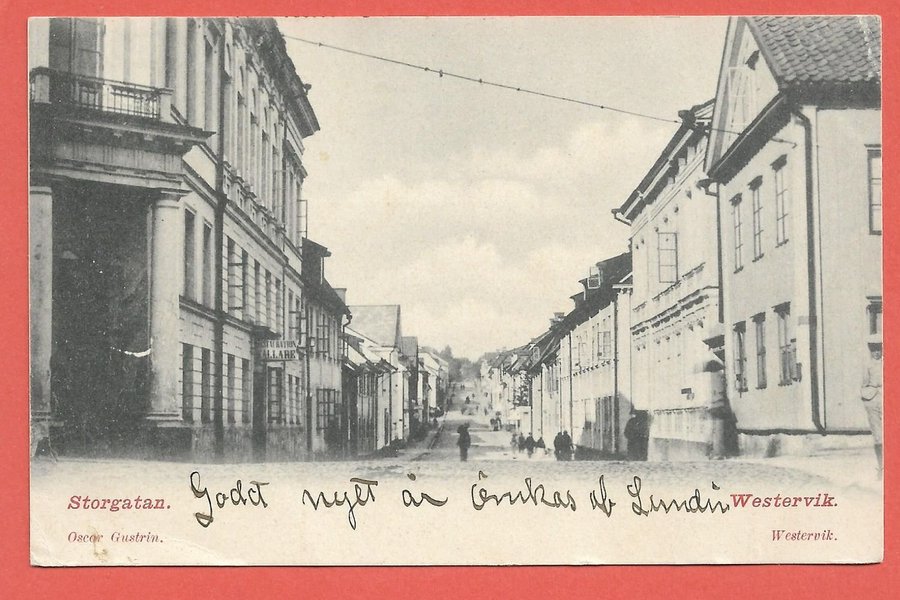 STAURATION
ÄLLARE
Storgatan. Godt nytt år Önskas af Lundin Westervik.
Oscar Gustrin. Westervik.